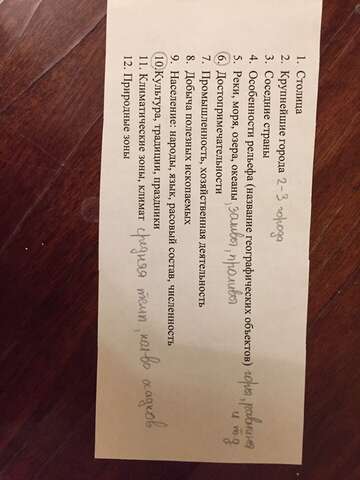 1. Столица
2. Крупнейшие города 2-3 города
3. Соседние страны
4. Особенности рельефа (название географических объектов) горы, равнины и тд
5. Реки, моря, озера, океаны, заливы, проливы
6. Достопримечательности
7. Промышленность, хозяйственная деятельность
8. Добыча полезных ископаемых
9. Население: народы, язык, расовый состав, численность
10. Культура, традиции, праздники
11. Климатические зоны, климат средняя темп, кол-во осадков
12. Природные зоны